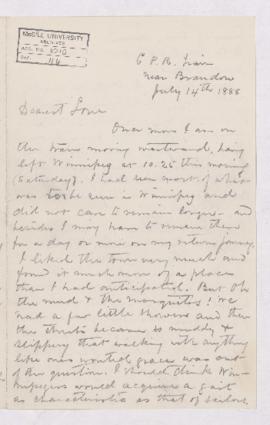 McGILL UNIVERSITY
ARCHIVES
ACC. NO.
REF.
C P. R. Train
near Brandon
July 14th 1888
Dearest Love
Once more I am on
the train moving westward, having
left Winnipeg at 10.25 this morning
(Saturday). I had seen most of what
was to be seen in Winnipeg and
did not care to remain longer - and
besides I may have to remain there
for a day or more on my return journey.
I liked the town very much and
found it much more of a place
than I had anticipated. But Oh
the mud & the mosquitos! We
had a few little showers and then
the streets became so muddy &
slippery that walking with anything
like ones wonted grace was out
of the question. I should think Win-
nipegers would acquire a gait
as characteristic as that of sailors